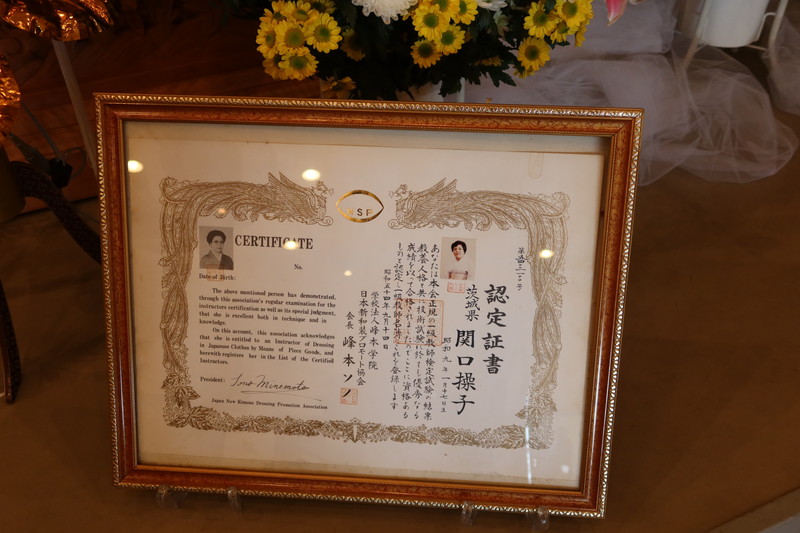 SF
CERTIFICATE
Date of Birth:
No.
The above mentioned person has demonstrated,
through this association's regular examination for the
instructors certification as well as its special judgment,
that she is excellent both in technique and in
knowledge.
On this account, this association acknowledges
that she is entitled to an Instructor of Dressing
in Japanese Clothes by Means of Piece Goods, and
herewith registers her in the List of the Certified
Instructors.
President:
Sono Minemoto
Japan New Kimono Dressing Promotion Association
認定証書
茨城県 関口操子
昭和九年一月十七日生
あなたは本会正規の一級教師検定試験の結果
教養人格と共に技術試験に於ても優秀なる
成績を以って合格されました
ここに資格ある
ものと認定し一級教師名簿にこれを登録します
昭和五十四年九月十四日
学校法人峰本学院
日本新和装プロモート協会
会長 峰本ソノ